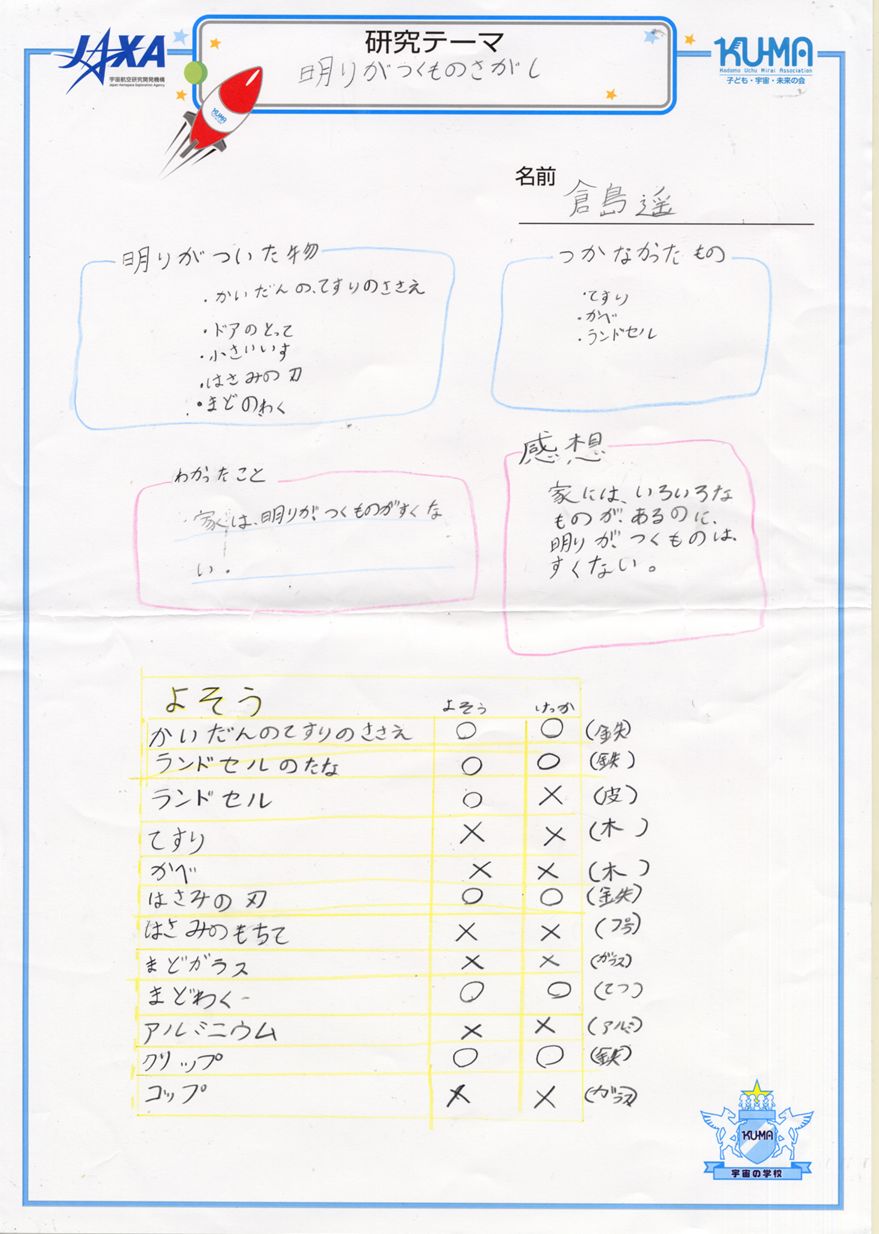 JAXA
宇宙航空研究開発機構
Japan Aerospace Exploration Agency
研究テーマ
明りがつくものさがし
KU-MA
Kodomo Uchu Mirai Association
子ども・宇宙・未来の会
KU-MA
名前
倉島遥
明りがついた物
・かいだんの、てすりのささえ
・ドアのとって
・小さいいす
・はさみの刃
・まどのわく
つかなかったもの
・てすり
・かべ
・ランドセル
わかったこと
家は、明りが、つくものがすくな
い。
感想
家には、いろいろな
ものが、あるのに、
明りが、つくものは、
すくない。
よそう よそう けっか
かいだんのてすりのささえ ○ ○ (鉄)
ランドセルのたな ○ ○ (鉄)
ランドセル ○ × (皮)
てすり × × (木)
かべ × × (木)
はさみの刃 ○ ○ (鉄)
はさみのもちて × ×
まどガラス × × (ガラス)
まどわく ○ ○ (てつ)
アルミニウム × × (アルミ)
クリップ ○ ○ (鉄)
コップ × × (ガラス)
KU-MA
宇宙の学校